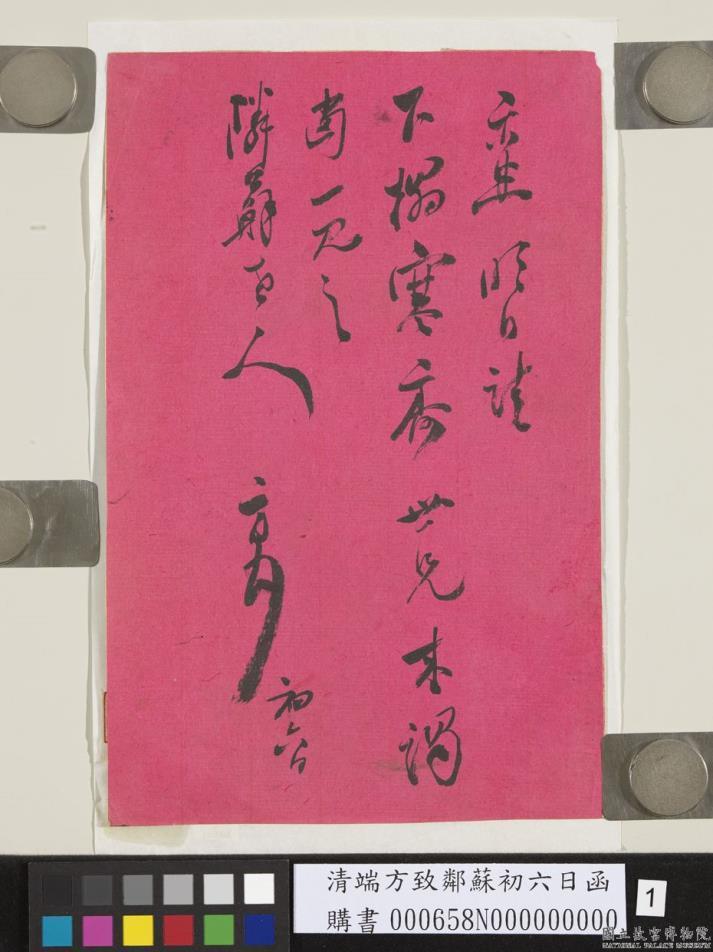 示 明日請
下榻寒齋世兄來謁
當一見之
隣蘇老人
初六日
清端方致鄰蘇初六日函
購書 000658N000000000
1
國立故宮博物院
NATIONAL PALACE MUSEUM